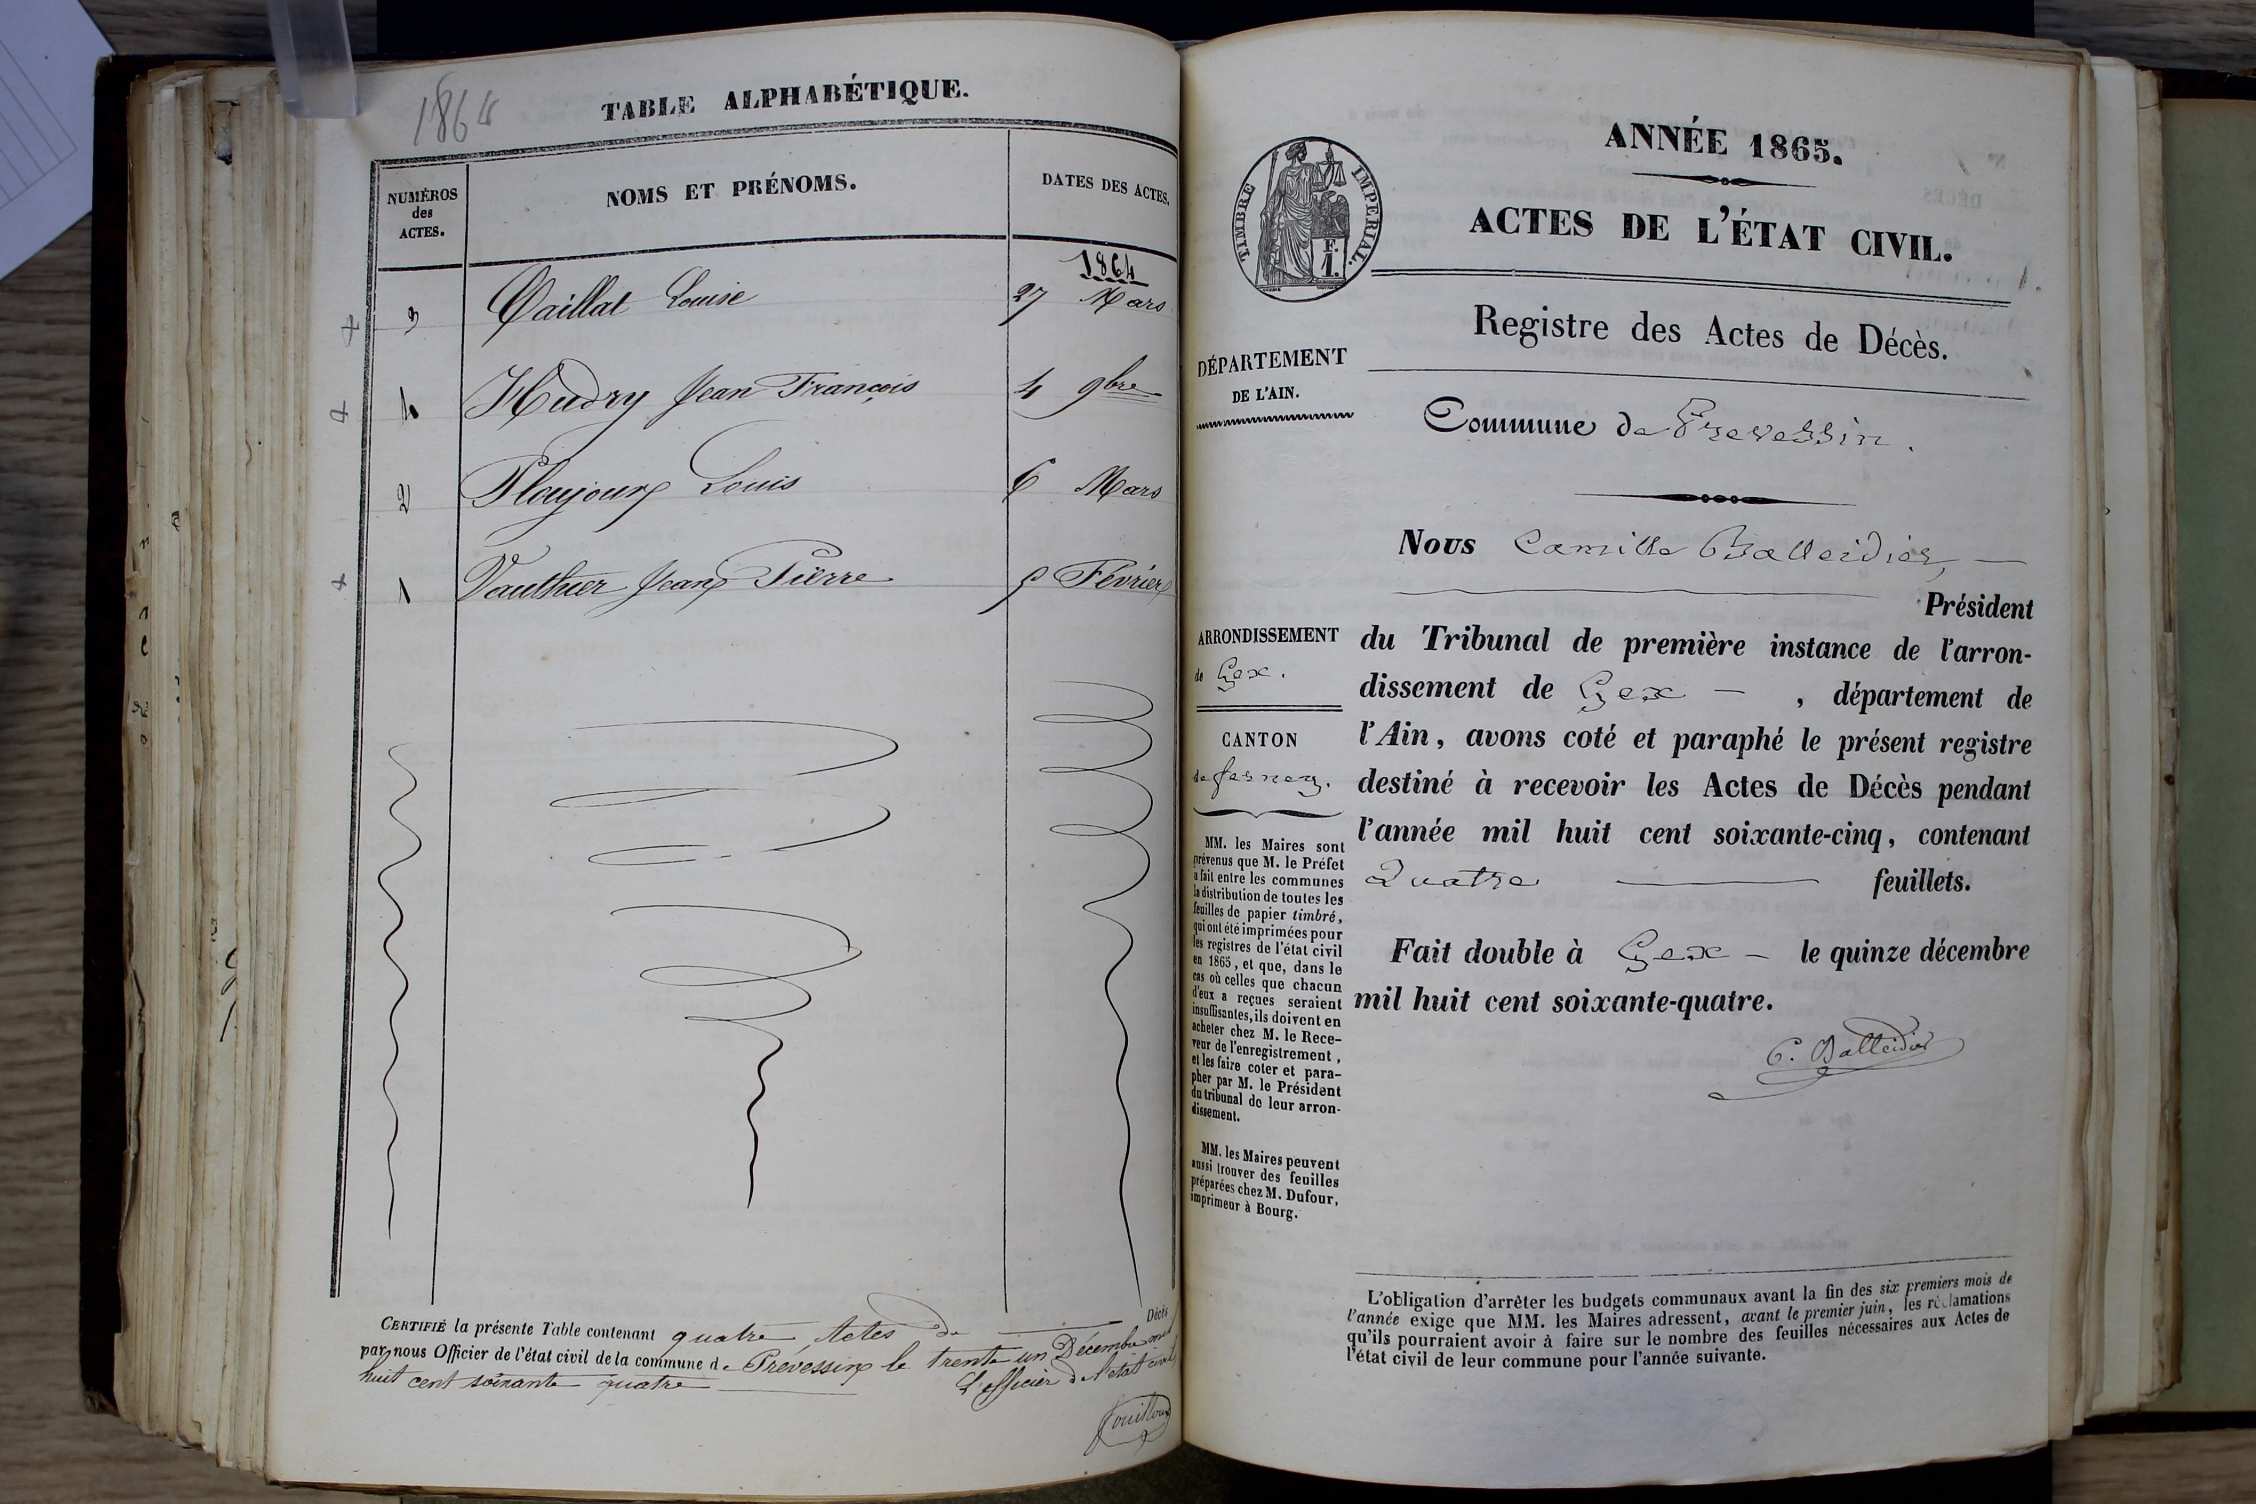 1864
TABLE ALPHABÉTIQUE.
NUMÉROS
des
ACTES.
NOMS ET PRÉNOMS.
DATES DES ACTES.
1864
3 Caillat Louise 27 Mars
4 Hudry Jean François 4 9bre
2 Plaujoux Louis 6 Mars
1 Vauthier Jean Pierre 5 Février
CERTIFIÉ la présente Table contenant quatre Actes de Décès
par nous Officier de l'état civil de la commune de Prévessin le trente un Décembre mil
huit cent soixante quatre
L'officier de l'état civil
ANNÉE 1865.
TIMBRE IMPERIAL.
F.
1.
ACTES DE L'ÉTAT CIVIL.
Registre des Actes de Décès.
DÉPARTEMENT
DE L'AIN.
Commune de Prevessin.
Nous Camille Balleidier,
Président
ARRONDISSEMENT
de Gex.
CANTON
de ferney.
du Tribunal de première instance de l'arron-
dissement de Gex, département de
l'Ain, avons coté et paraphé le présent registre
destiné à recevoir les Actes de Décès pendant
l'année mil huit cent soixante-cinq, contenant
Quatre feuillets.
Fait double à Gex le quinze décembre
mil huit cent soixante-quatre.
C. Balleidier
MM. les Maires sont
prévenus que M. le Préfet
a fait entre les communes
la distribution de toutes les
feuilles de papier timbré,
qui ont été imprimées pour
les registres de l'état civil
en 1865, et que, dans le
cas où celles que chacun
d'eux a reçues seraient
insuffisantes, ils doivent en
acheter chez M. le Rece-
veur de l'enregistrement,
et les faire coter et para-
pher par M. le Président
du tribunal de leur arron-
dissement.
MM. les Maires peuvent
aussi trouver des feuilles
préparées chez M. Dufour,
imprimeur à Bourg.
L'obligation d'arrêter les budgets communaux avant la fin des six premiers mois de
l'année exige que MM. les Maires adressent, avant le premier juin, les réclamations
qu'ils pourraient avoir à faire sur le nombre des feuilles nécessaires aux Actes de
l'état civil de leur commune pour l'année suivante.